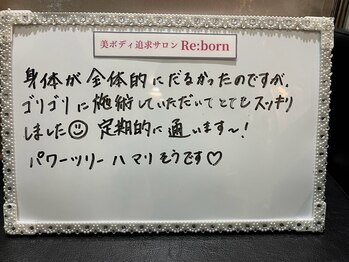 美ボディ追求サロン Re:born
身体が全体的にだるかったのですが、
ゴリゴリに施術していただいてとてもスッキリ
しました☺ 定期的に通います〜!
パワーツリー ハマりそうです♡